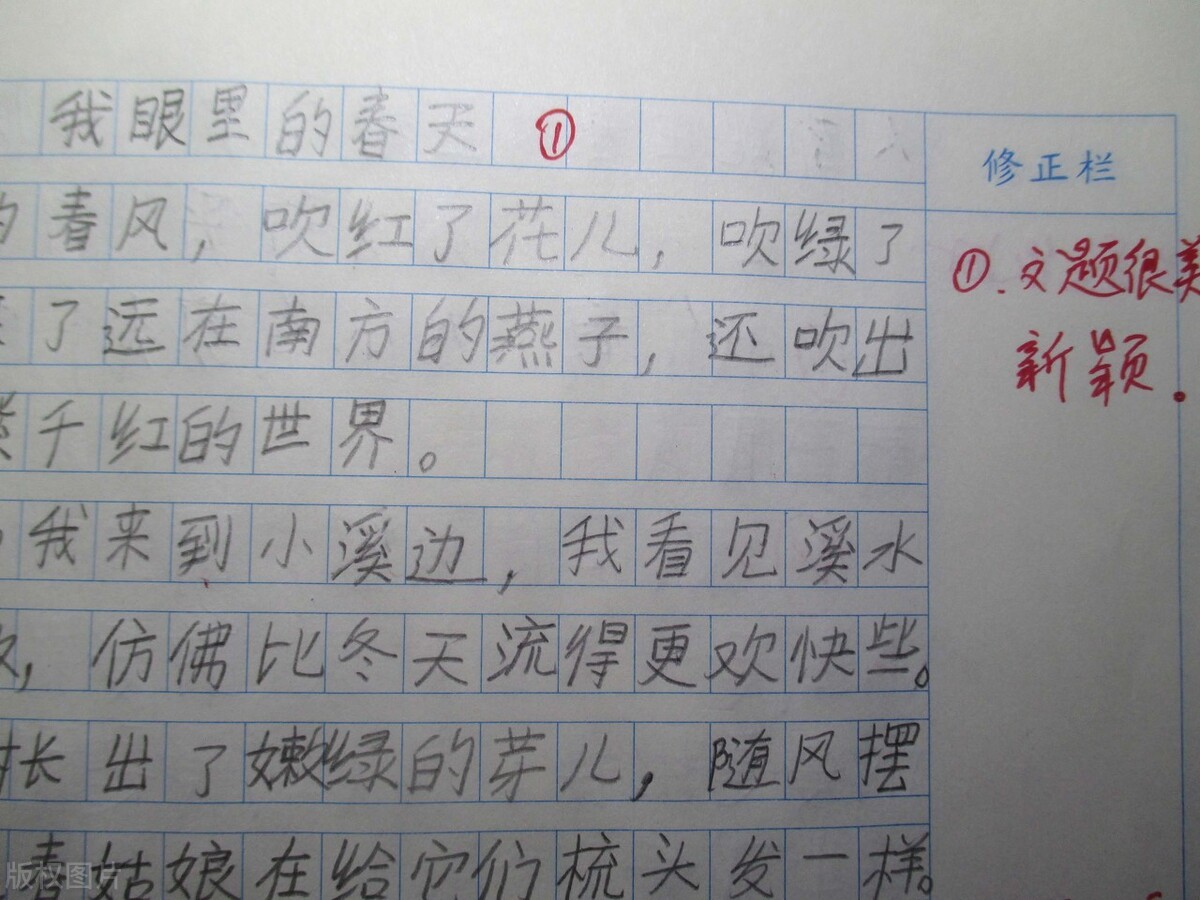 我眼里的春天 ①
修正栏
春风，吹红了花儿，吹绿了
①.文题很美
新颖.
了远在南方的燕子，还吹出
千红的世界。
我来到小溪边，我看见溪水
，仿佛比冬天流得更欢快些。
长出了嫩绿的芽儿，随风摆
春姑娘在给它们梳头发一样。
版权图片